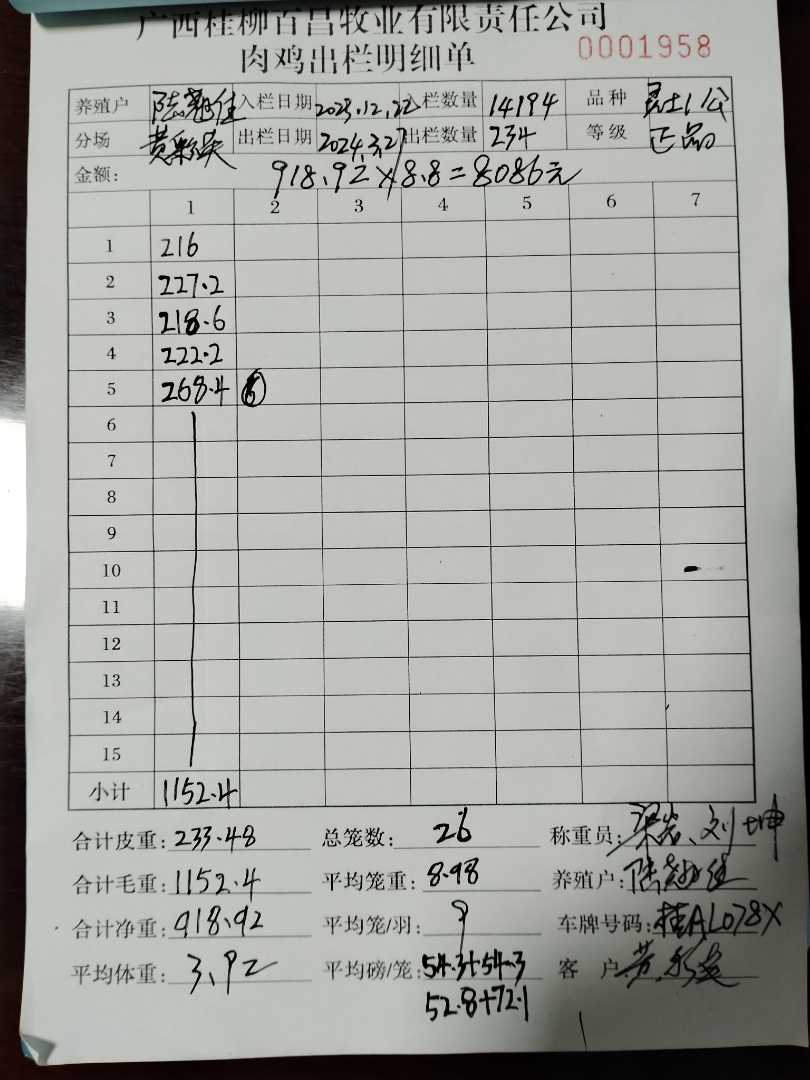 广西桂柳百昌牧业有限责任公司
肉鸡出栏明细单 0001958
养殖户 入栏日期 2023.12.22 入栏数量 14194 品种
分场 出栏日期 2024.3.27 出栏数量 234 等级 正品
金额: 918.92×8.8=8086元
1 2 3 4 5 6 7
1 216
2 227.2
3 218.6
4 222.2
5 268.4 ⑥
6
7
8
9
10
11
12
13
14
15
小计 1152.4
合计皮重: 233.48 总笼数: 26 称重员:
合计毛重: 1152.4 平均笼重: 8.98 养殖户:
合计净重: 918.92 平均笼/羽: 9 车牌号码: 桂AL078X
平均体重: 3.92 平均磅/笼: 54.3+54.3 客户
52.8+72.1